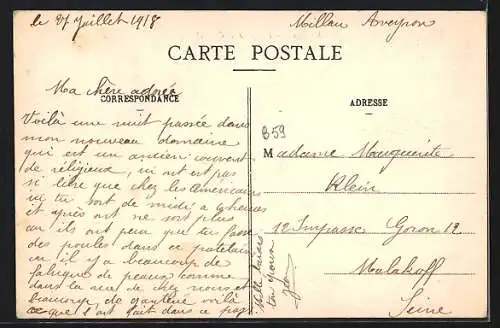 le 27 Juillet 1918
Millau Aveyron
CARTE POSTALE
Ma chère adorée
CORRESPONDANCE
Voilà une nuit passée dans
mon nouveau domaine
qui est un ancien couvent
de religieux, ici on est pas
si libre que chez les Américains
ici tu sort de midi a heures
et après on ne sort plus
car ils ont peur que tu fasse
des poules dans ce patelin
car il y a beaucoup de
fabriques de peaux comme
dans la rue de chez nous et
beaucoup de ganterie voilà
ce que l'on fait dans ce pays
Mille baisers
ton époux
ADRESSE
859
Madame Marguerite
Klein
12 Impasse Goron 12
Malakoff
Seine